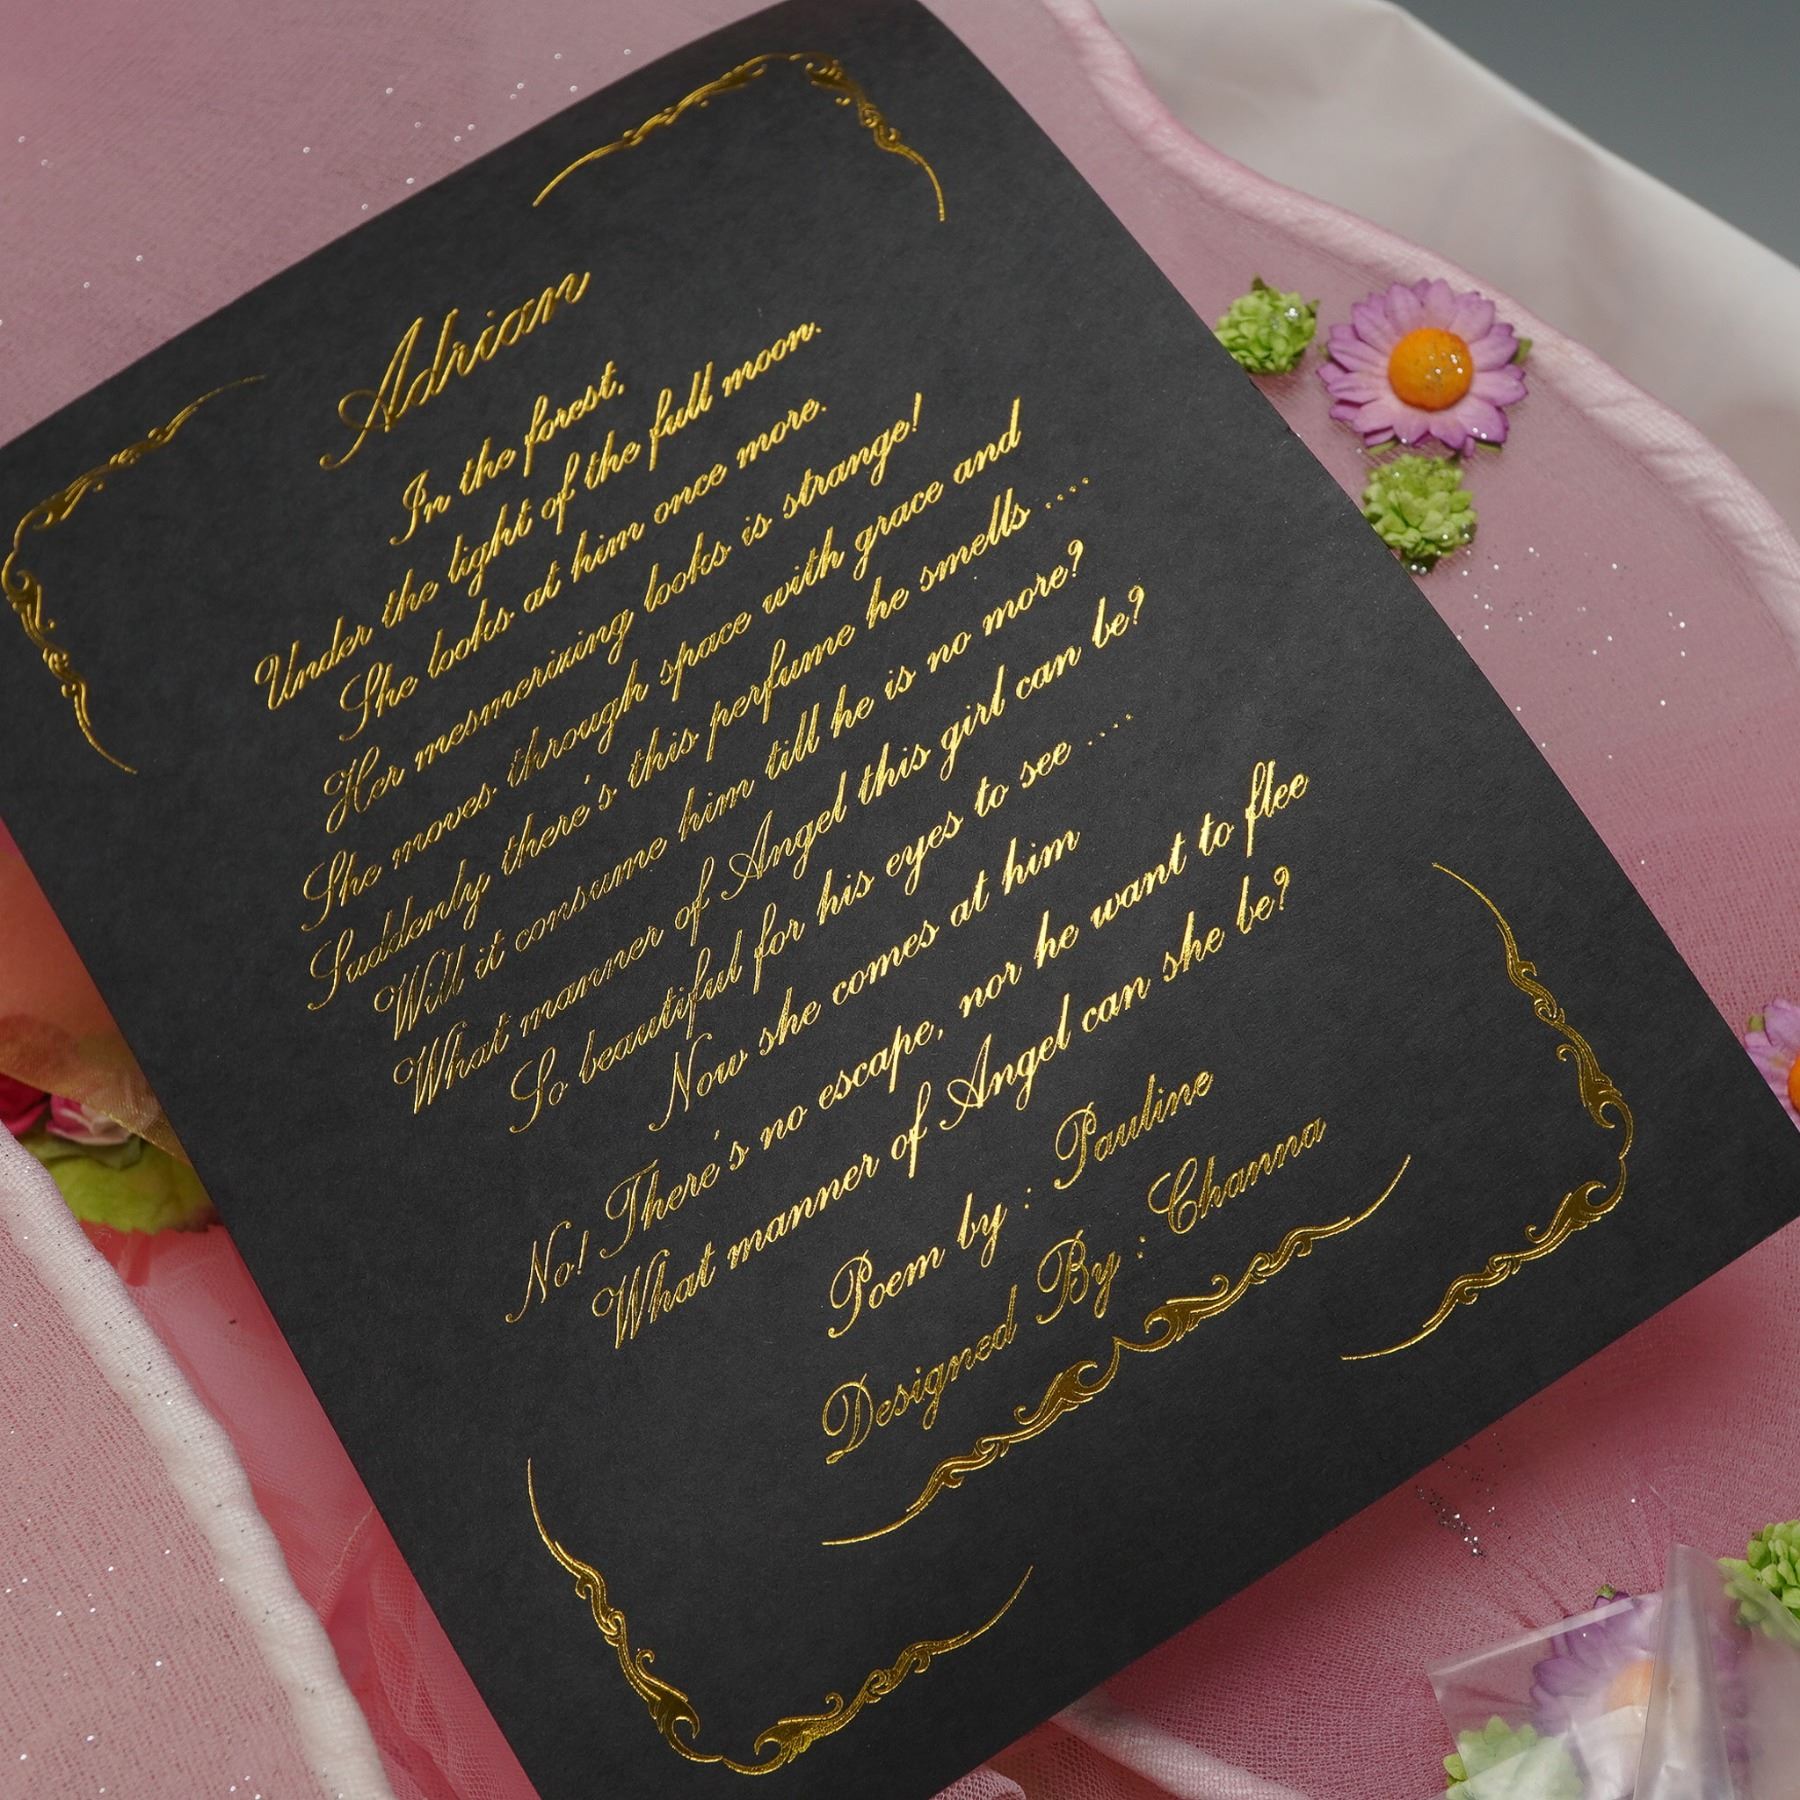 Adrian
In the forest,
Under the light of the full moon.
She looks at him once more.
Her mesmerizing looks is strange!
She moves through space with grace and
Suddenly there's this perfume he smells .....
Will it consume him till he is no more?
What manner of Angel this girl can be?
So beautiful for his eyes to see ....
Now she comes at him
No! There's no escape, nor he want to flee
What manner of Angel can she be?
Poem by : Pauline
Designed By : Channa